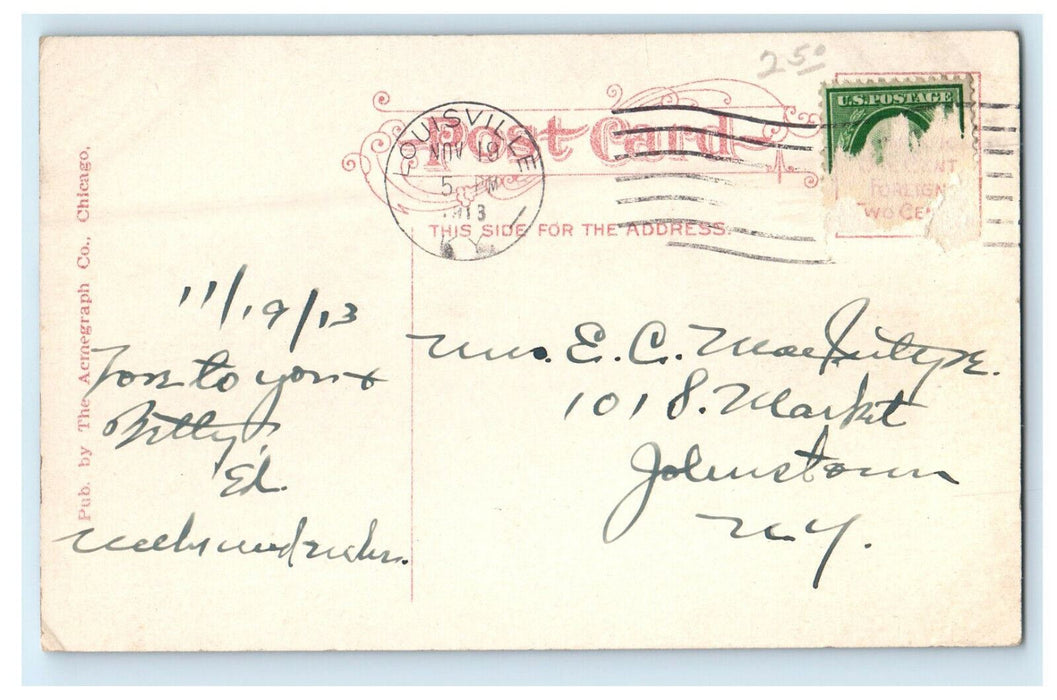 2 50
Post Card
THIS SIDE FOR THE ADDRESS.
LOUISVILLE
NOV 19
5 PM
1913
KY
U.S. POSTAGE
FOREIGN
TWO CE
Pub. by The Acmegraph Co., Chicago,
11/19/13
to you +
Betty.
Ed.
Mrs. E. C. MacIntyre.
101 S. Market
Johnstown
N.Y.